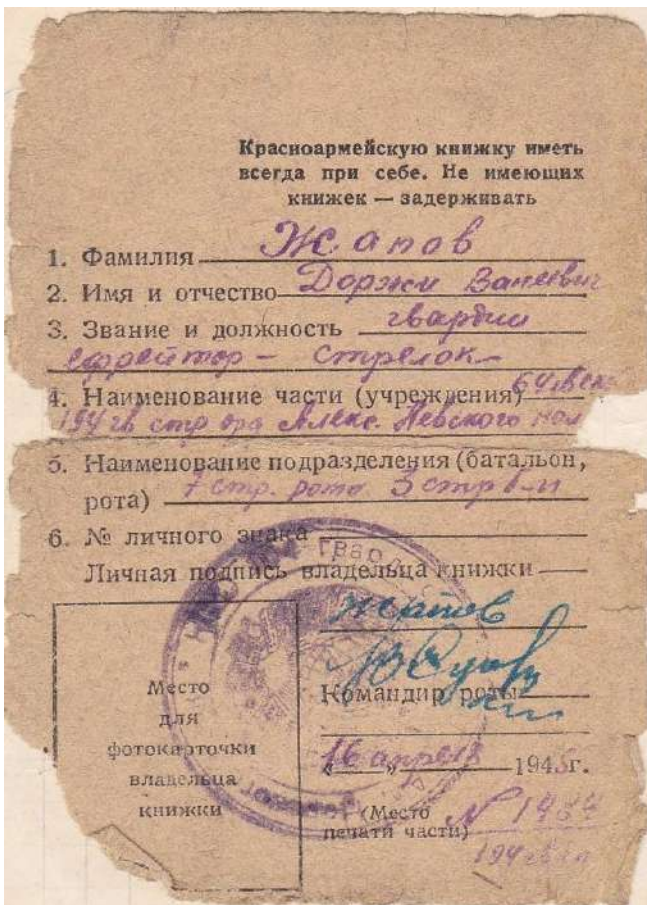 Красноармейскую книжку иметь
всегда при себе. Не имеющих
книжек — задерживать
1. Фамилия Жапов
2. Имя и отчество Доржи
3. Звание и должность гвардии
ефрейтор - стрелок
4. Наименование части (учреждения)
194 гв стр орд Алекс. Невского пол
5. Наименование подразделения (батальон,
рота) 7 стр. рота 3 стр б-н
6. № личного знака
Личная подпись владельца книжки
Жапов
Командир роты
Место
для
фотокарточки
владельца
книжки
„16“ апреля 1945г.
(Место
печати части)
194 гв